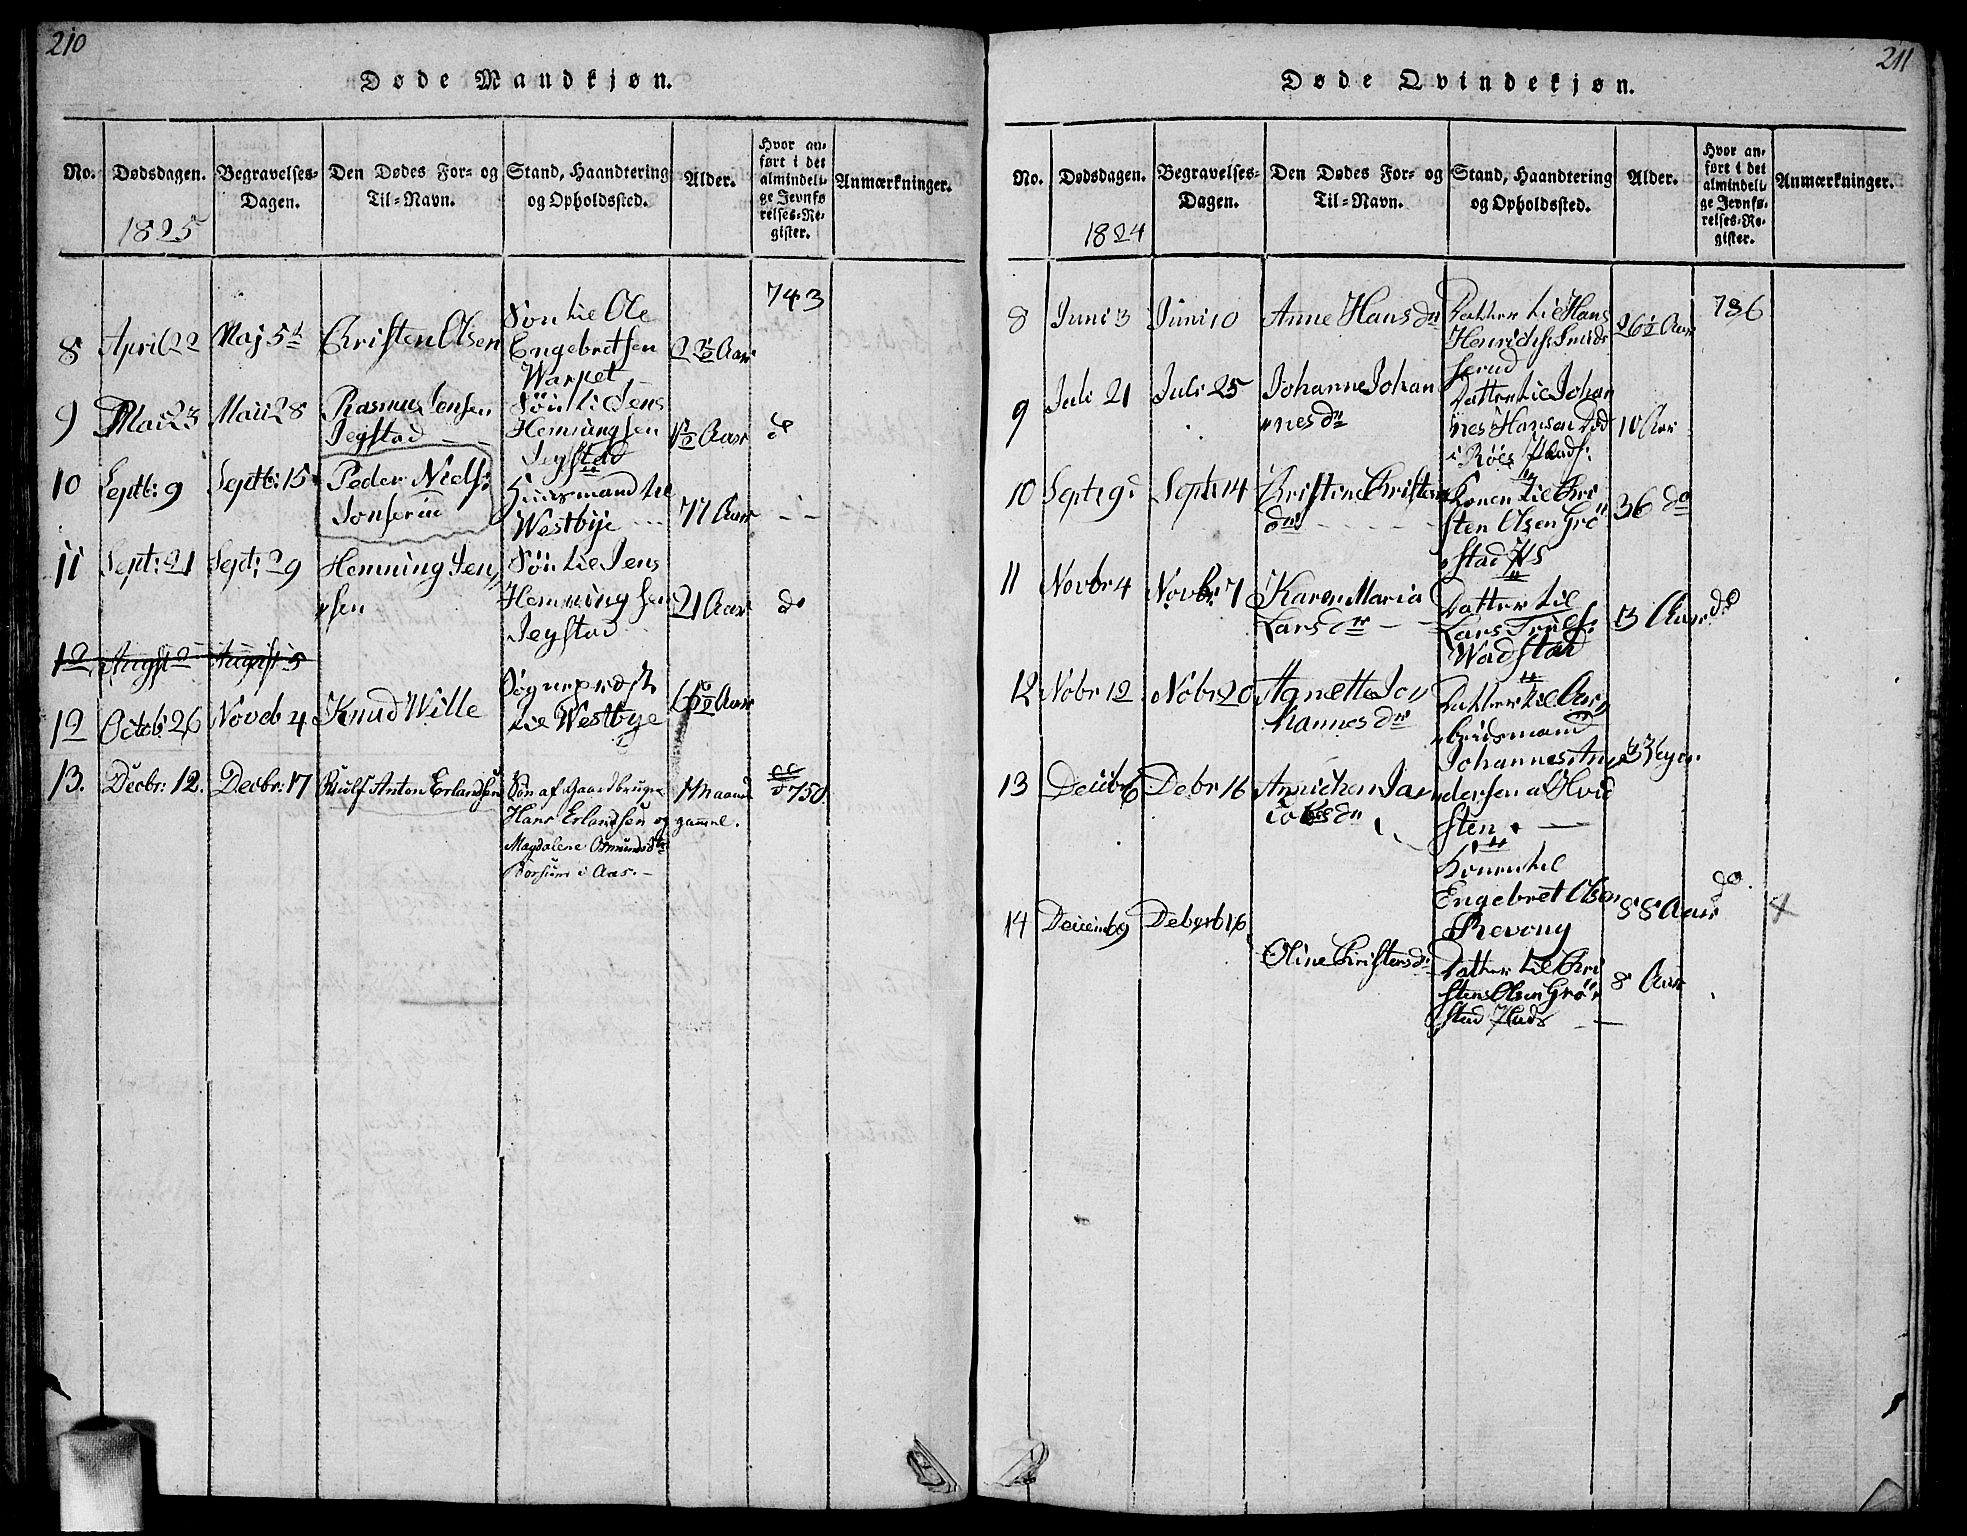 210
Døde Mandkjøn.
No.
Dødsdagen.
Begravelses-
Dagen.
Den Dødes For- og
Til-Navn.
Stand, Haandtering
og Opholdssted.
Alder.
Hvor an-
ført i det
almindeli-
ge Jevnfø-
relses-Re-
gister.
Anmærkninger.
1825
8 April 22 Maj 5t Christen Olsen
Søn til Ole
Engebretsen
Warpet
2 1/2 Aar
743
9 Mai 23 Maii 28 Rasmus Jensen
Jegstad
Søn til Jens
Hemmingsen
Jegstad
1/2 Aar
do
10 Septb: 9 Septb: 15 Peder Niels:
Jonserud
Huusmand til
Westbye
77 Aar
11 Sept: 21 Sept: 29 Hemming Jen
sen
Søn til Jens
Hemmingsen
Jegstad
21 Aar
do
12 Augst 2 August 5
12 Octob 26 Noveb 4 Knud Wille
Sognepræst
til Westbye
Aar
13. Decbr: 12. Decbr: 17 Rulf Anton Erlandsen
Søn af Gaardbruger
Hans Erlandsen og
Magdalene Osmundsdtr
Borsum i Aas.
Maand
gamml.
750
211
Døde Qvindekjøn.
No.
Dødsdagen.
Begravelses-
Dagen.
Den Dødes For- og
Til-Navn.
Stand, Haandtering
og Opholdssted.
Alder.
Hvor an-
ført i det
almindeli-
ge Jevnfø-
relses-Re-
gister.
Anmærkninger.
1824
8 Juni 3 Juni 10 Anne Hansdr
Datter til Hans
Henrichs: Smids
serud
26 1/2 Aar
736
9 Juli 21 Juli 25 Johanne Johan
nesdr
Datter til Johan
nes Hansen Død
i Röes Plads:
10 Aar
10 Septr 9 Septr 14 Christine Christens
dr
Konen til Chri
sten Olsen Grö
stad Pls
36 do
11 Novbr 4 Novbr: 7 Karen Maria
Larsdr
Datter til
Lars Truls:
Wadstad
13 Aar
do
12 Nobr 12 Nobr 20 Agnette Jo
hannesdr
Datter til Ar
beidsmand
Johannes An
dersen a Hvid
sten
3 Uger.
13 Decibr 6 Debr 16 Annichen Ja
cobsdr
Konen til
Engebret Olsen
Revong
88 Aar
do.
14 Decemb 9 Deberb 16
Oline Christensdr
Datter til Chri
stens Olsen Grö
stad Plads
8 Aar